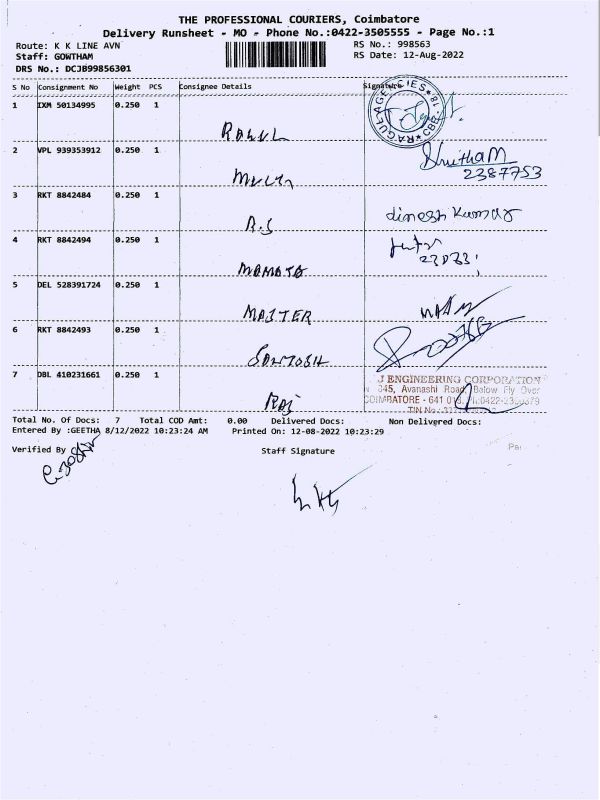 THE PROFESSIONAL COURIERS, Coimbatore
Delivery Runsheet - MO - Phone No.:0422-3505555 - Page No.:1
Route: K K LINE AVN
RS No.: 998563
Staff: GOWTHAM
RS Date: 12-Aug-2022
DRS No.: DCJB99856301
S No Consignment No Weight PCS Consignee Details Signature
1 IXM 50134995 0.250 1
RAGUL AGENCIES CBE-18
RAHUL
2 VPL 939353912 0.250 1
2387753
3 RKT 8842484 0.250 1
R.S dinesh Kumar
4 RKT 8842494 0.250 1
MAMATA
5 DEL 528391724 0.250 1
MASTER
6 RKT 8842493 0.250 1
SANTOSH
7 DBL 410231661 0.250 1
J ENGINEERING CORPORATION
345, Avanashi Road, Below Fly Over
RAJ COIMBATORE - 641 018. Ph:0422-
TIN No.:
Total No. Of Docs: 7 Total COD Amt: 0.00 Delivered Docs: Non Delivered Docs:
Entered By :GEETHA 8/12/2022 10:23:24 AM Printed On: 12-08-2022 10:23:29
Verified By Staff Signature